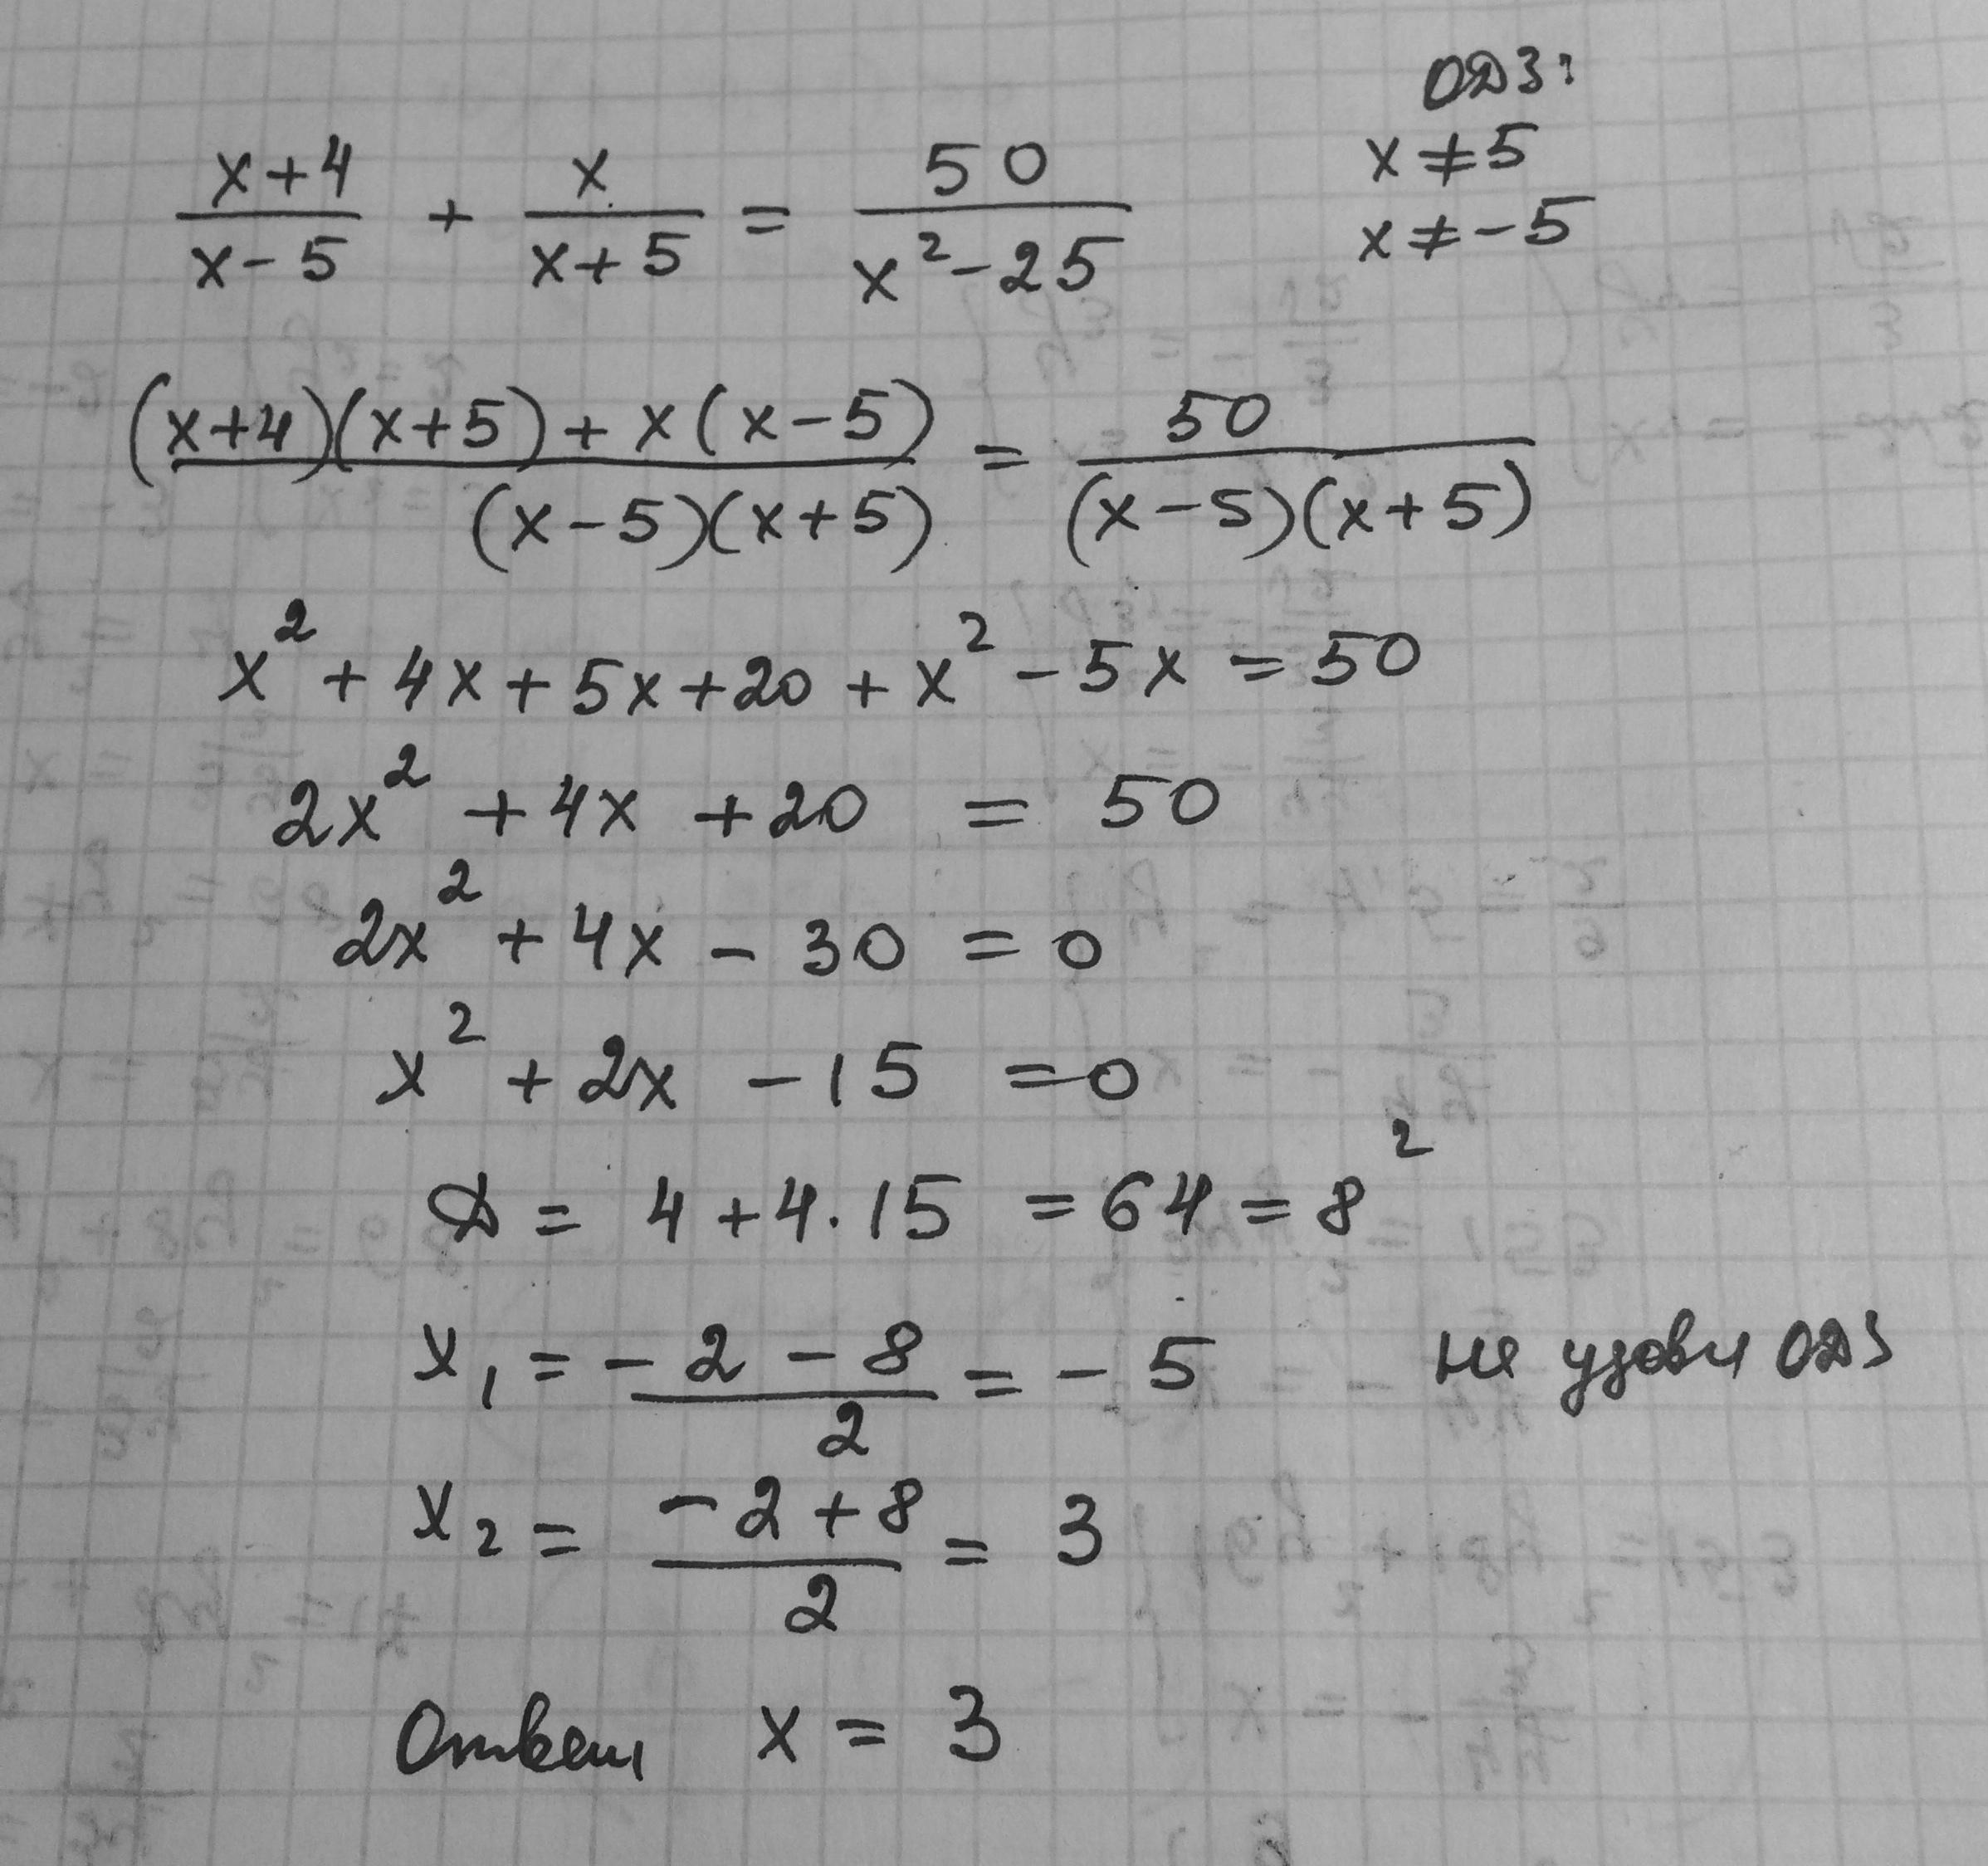 ОДЗ:
(x+4)/(x-5) + x/(x+5) = 50/(x²-25)
x ≠ 5
x ≠ -5
((x+4)(x+5) + x(x-5))/((x-5)(x+5)) = 50/((x-5)(x+5))
x² + 4x + 5x + 20 + x² - 5x = 50
2x² + 4x + 20 = 50
2x² + 4x - 30 = 0
x² + 2x - 15 = 0
D = 4 + 4·15 = 64 = 8²
x₁ = (-2-8)/2 = -5 не удовл ОДЗ
x₂ = (-2+8)/2 = 3
Ответ x = 3